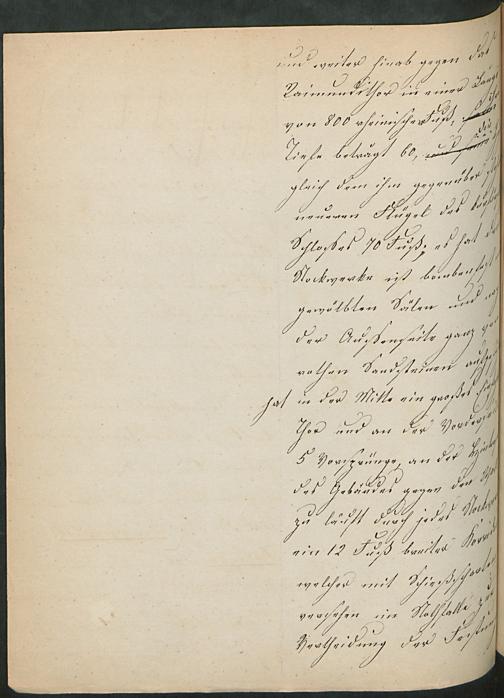 und weiter hinab gegen das
Raimundithor in einer Länge
von 800 rheinischen Fuß,
Tiefe beträgt 60,
gleich dem ihm gegenüber
neueren Flügel des
Schlosses 70 Fuß; es hat
Stockwerke ist bombenfest
gewölbten Sälen und
der Aussenseite ganz
rothen Sandsteinen
hat in der Mitte ein großes
Thor und an der
5 Vorsprünge, an der
des Gebäudes gegen den
zu läuft durch jedes
ein 12 Fuß breiter
welcher mit
versehen im Nothfalle
Vertheidung der